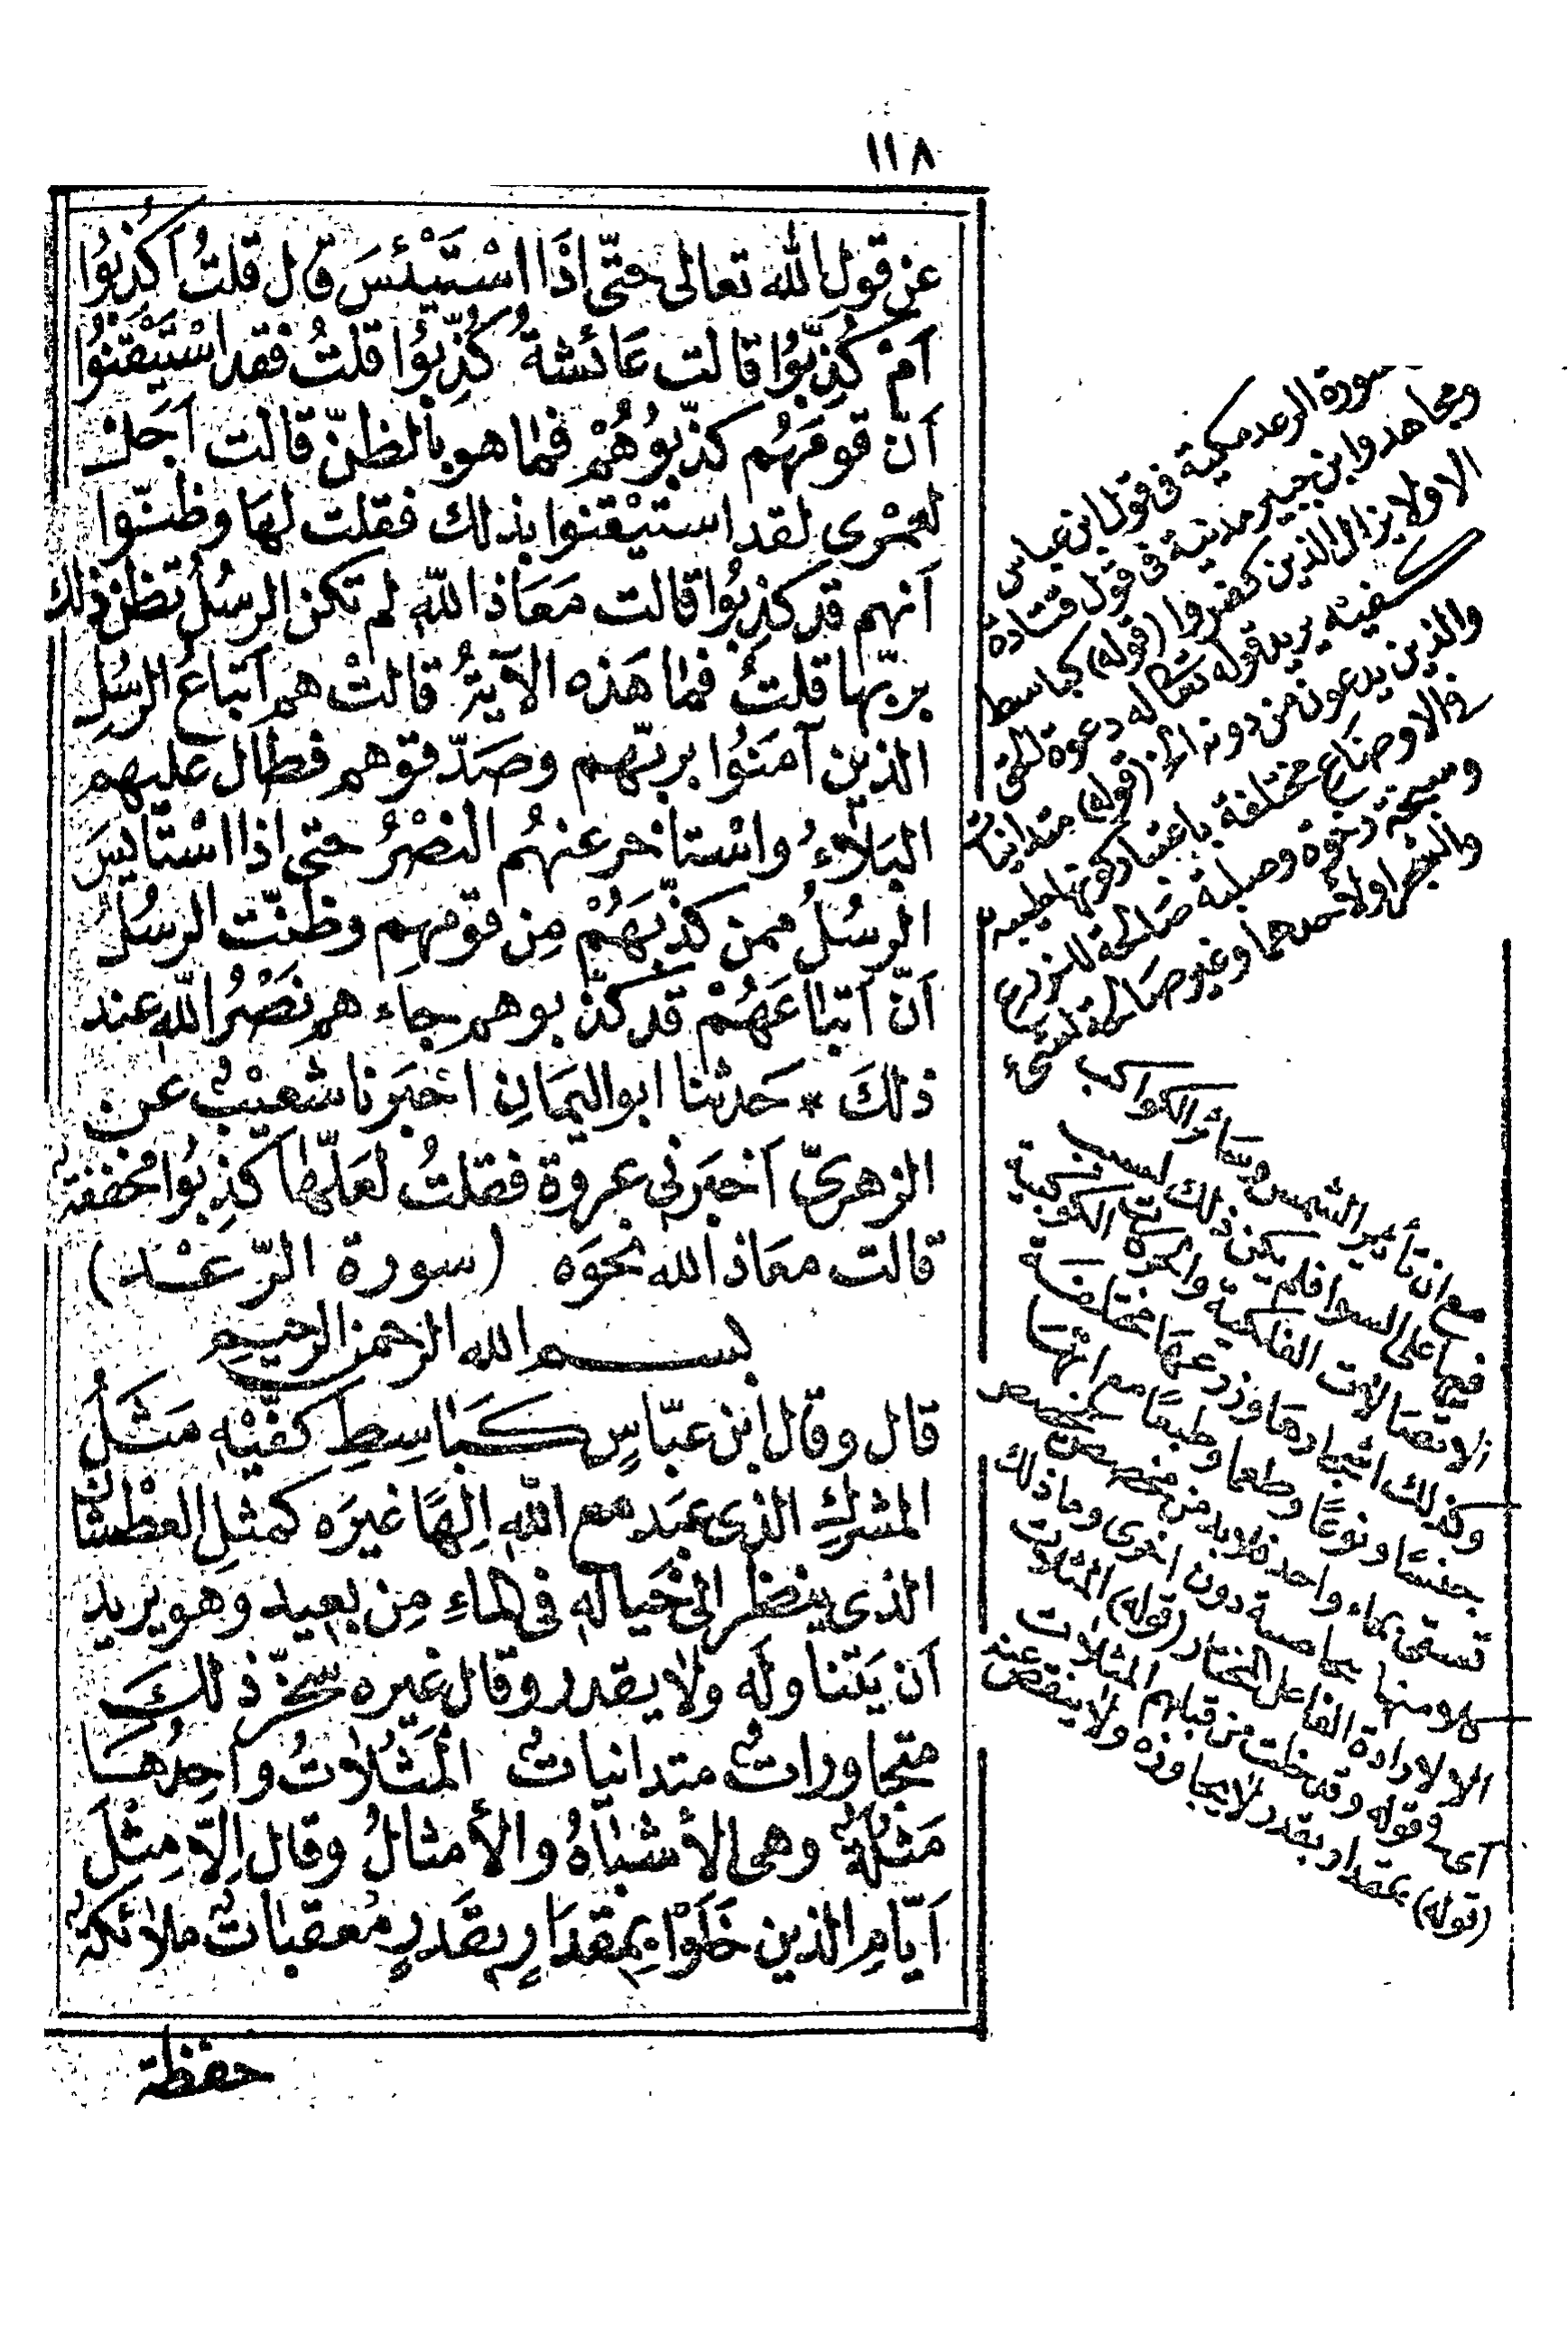 ١١٨
عن قولِ الله تعالى حتّى اذَا اسْتَيْئَسَ قال قلتُ اَكُذِبُوا
اَمْ كُذِّبُوا قالت عَائشةُ كُذِّبُوا قلتُ فقد اسْتَيْقَنُوا
اَنّ قومَهُم كذّبُوهُمْ فما هو بالظنّ قالت اَجَلْ
لعمْرى لقد استيْقنوا بذلك فقلت لهَا وظنّوا
اَنهم قد كذِبُوا قالت مَعَاذ اللّهِ لم تكن الرسُلُ تظن ذلك
بربّها قلتُ فما هَذه الآيةُ قالتْ هم اَتباعُ الرسُلِ
الذين آمَنُوا بربّهم وصَدّقوهم فطال عليهم
البَلاءُ واسْتاخر عنهُم النصْرُ حتى اذا اسْتَايسَ
الرسُلُ ممن كذّبَهُمْ مِن قومهِم وظنّت الرسُلُ
اَنّ اَتباعَهُمْ قد كذّبوهم جاءهم نَصْرُ اللّهِ عند
ذلكَ * حَدثنا ابو اليمَانِ اخبَرنا شعيْبٌ عن
الزهرىّ اَخبَرنى عروة فقلتُ لعَلّها كذِبُوا مخففةٌ
قالت معَاذ الله نحوَه (سورة الرّعْد)
بسم الله الرحمن الرحيم
قال وقال ابن عبّاسٍ كَبَاسِطِ كفّيْهِ مَثَلُ
المشركِ الذى عبَد مع اللّهِ اِلهًا غيرَه كمثلِ العطْشان
الذى ينظر الى خَيالهِ فى الماءِ مِن بعيد وهو يريد
اَن يَتناولَه ولا يقدر وقال غيره سخّر ذلكَ
متجاوراتٌ متدانياتٌ المَثُلاتُ واحِدُهَا
مَثُلةٌ وهى الأشباهُ والأمثالُ وقال اِلّا مِثْلَ
اَيّامِ الذين خَلَوْا بِمقدَارٍ بقَدَرٍ مُعقباتٌ ملائكةٌ
حفظة
سورة الرعد مكية فى قول ابن عباس
ومجاهد وابن جبير مدنية فى قول قتادة
الا ولا يزال الذين كفروا (قوله) كباسط
كفيه يريد قوله تعالى له دعوة الحق
والذين يدعون من دونه الخ (قوله) متدانيات
فى الاوضاع مختلفة باعتبار كونها طيبة
وسبخة رخوة وصلبة صالحة للزرع
والشجر اولا وغير صالحة لشئ
مع ان تأثير الشمس وسائر الكواكب
فيها على السوا فلم يكن ذلك لسبب
الاتصالات الفلكية والحركات الكوكبية
وكذلك اشجارها وزرعها مختلفة
جنسًا ونوعًا وطعما وطبعًا مع انها
تسقى بماء واحد فلا بد من مخصص يخصص
كلا منها بخاصة دون اخرى وما ذلك
الا لارادة الفاعل المختار (قوله) المثلات
اى فى قوله وقد خلت من قبلهم المثلات
(قوله) بمقدار بقدر لا يجاوزه ولا ينقص عنه